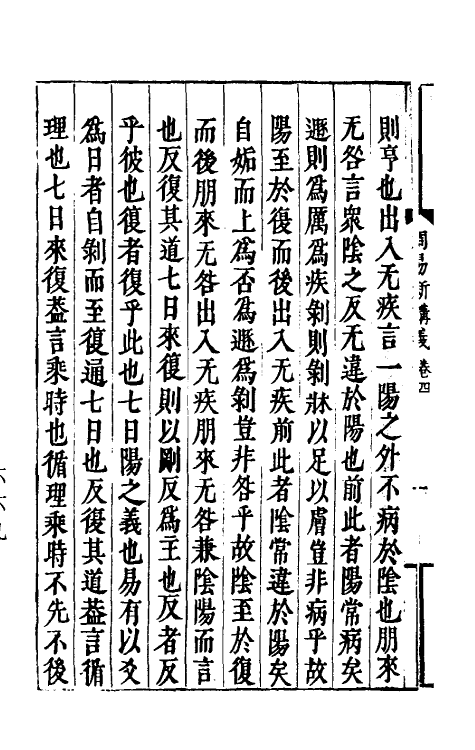 則亨也出入无疾言一陽之外不病於陰也朋來
无咎言眾陰之反无違於陽也前此者陽常病矣
遯則為厲為疾剝則剝牀以足以膚豈非病乎故
陽至於復而後出入无疾前此者陰常違於陽矣
自姤而上為否為遯為剝豈非咎乎故陰至於復
而後朋來无咎出入无疾朋來无咎兼陰陽而言
也反復其道七日來復則以剛反為主也反者反
乎彼也復者復乎此也七日陽之義也易有以爻
為日者自剝而至復通七日也反復其道葢言循
理也七日來復葢言乘時也循理乘時不先不後
周易新講義 卷四
一